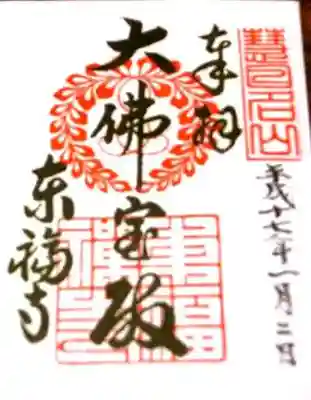 奉拝
平成十七年一月二日
大佛宝殿
東福寺